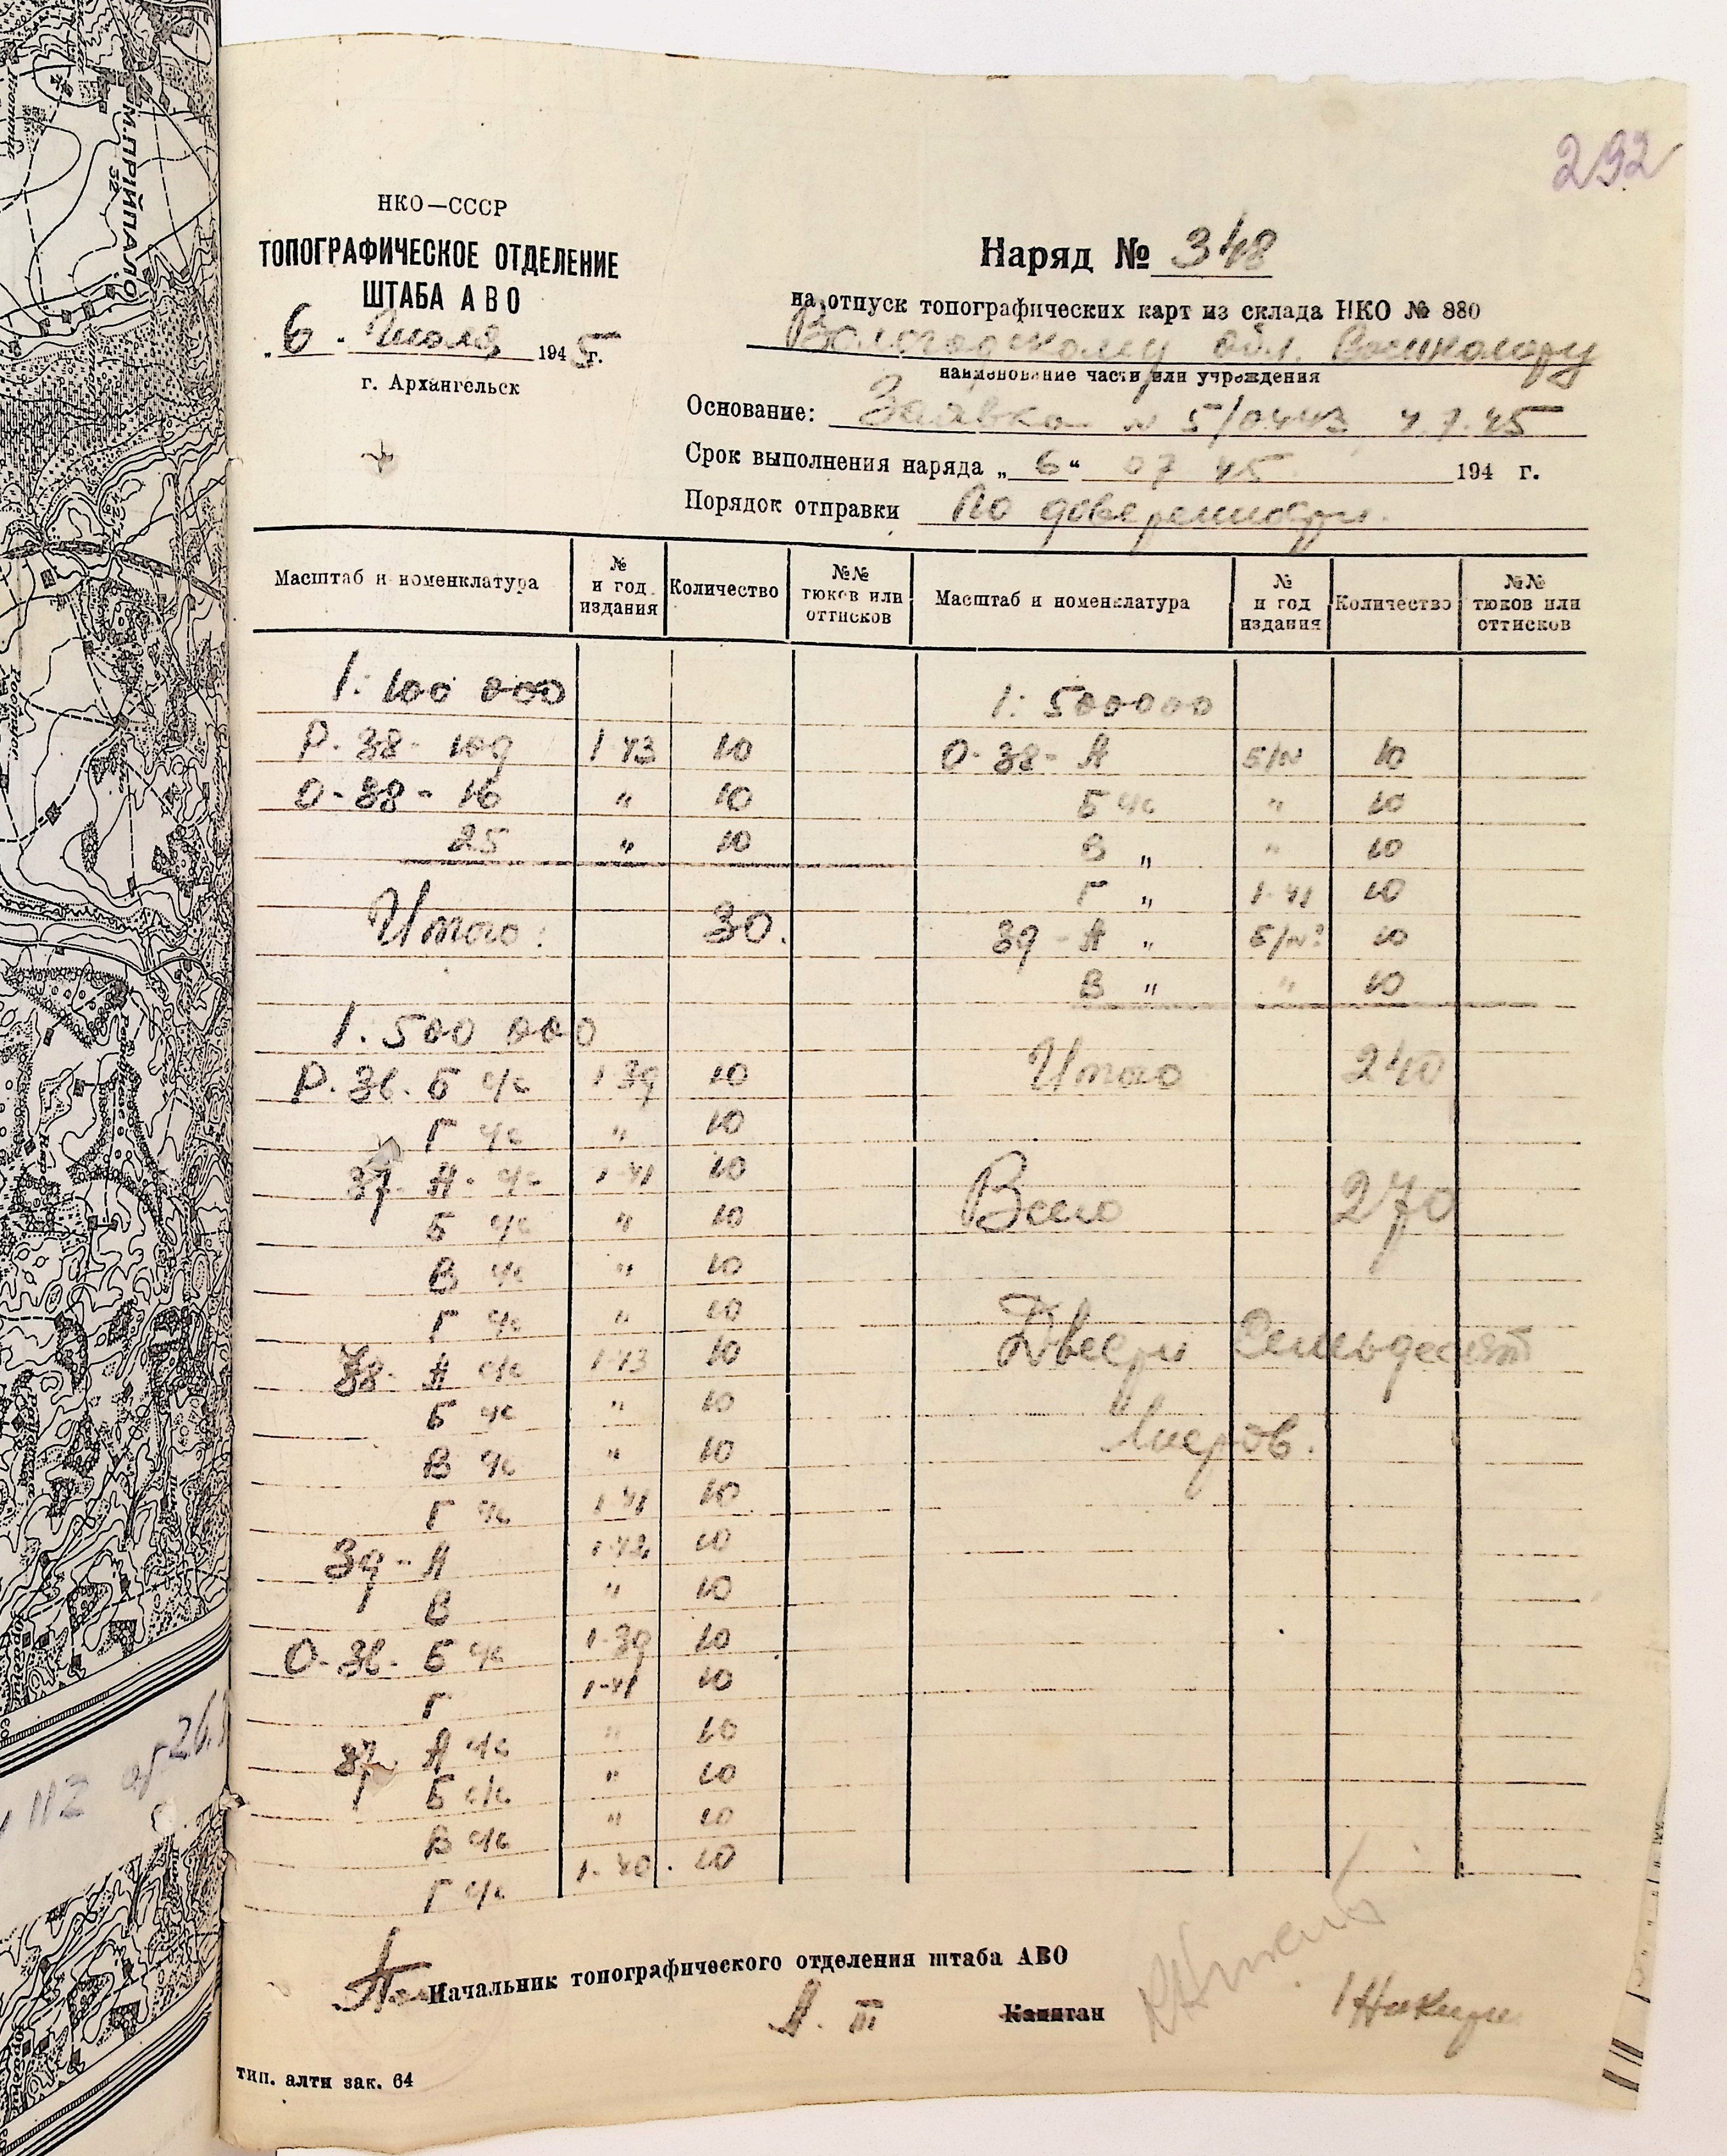 292
НКО—СССР
ТОПОГРАФИЧЕСКОЕ ОТДЕЛЕНИЕ
ШТАБА АВО
„6" Июля 1945 г.
г. Архангельск
Наряд № 348
на отпуск топографических карт из склада НКО № 880
Вологодскому обл. Военкомату
наименование части или учреждения
Основание: Заявка № 5/0443 4.7.45
Срок выполнения наряда „6" 07 45 194 г.
Порядок отправки По доверенности.
Масштаб и номенклатура | № и год издания | Количество | №№ тюков или оттисков | Масштаб и номенклатура | № и год издания | Количество | №№ тюков или оттисков
1:100 000
Р-38-109 1-43 10
О-38-16 " 10
25 " 10
Итого: 30.
1:500 000
Р-36-Б ч/с 1-39 10
Г ч/с " 10
37-А-ч- 1-41 10
Б ч/с " 10
В ч/с " 10
Г ч/с " 10
38-А с/с 1-43 10
Б ч/с " 10
В ч/с " 10
Г ч/с 1-41 10
39-А 1-42 10
В " 10
О-36-Б ч/с 1-39 10
Г 1-41 10
37 А ч/с " 10
Б с/с " 10
В ч/с " 10
Г ч/с 1-40. 10
1:500000
О-38-А Б/N 10
Б ч/с " 10
В " " 10
Г " 1-41 10
39-А " Б/№ 10
В " " 10
Итого 240
Всего 270
Двести Семьдесят
листов.
Начальник топографического отделения штаба АВО
Капитан
тип. алти зак. 64
М.ПРІЙПАЛО
32
112 от 26.